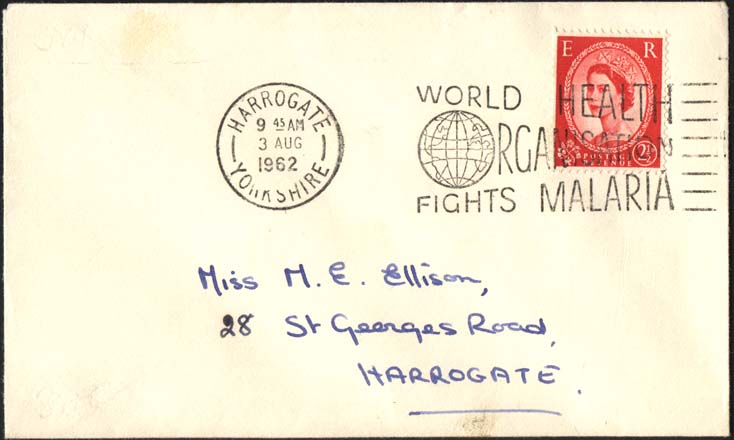 E R
POSTAGE
REVENUE 2½
HARROGATE
9 45 AM
3 AUG
1962
YORKSHIRE
WORLD HEALTH
ORGANISATION
FIGHTS MALARIA
Miss M. E. Ellison,
28 St Georges Road,
HARROGATE.